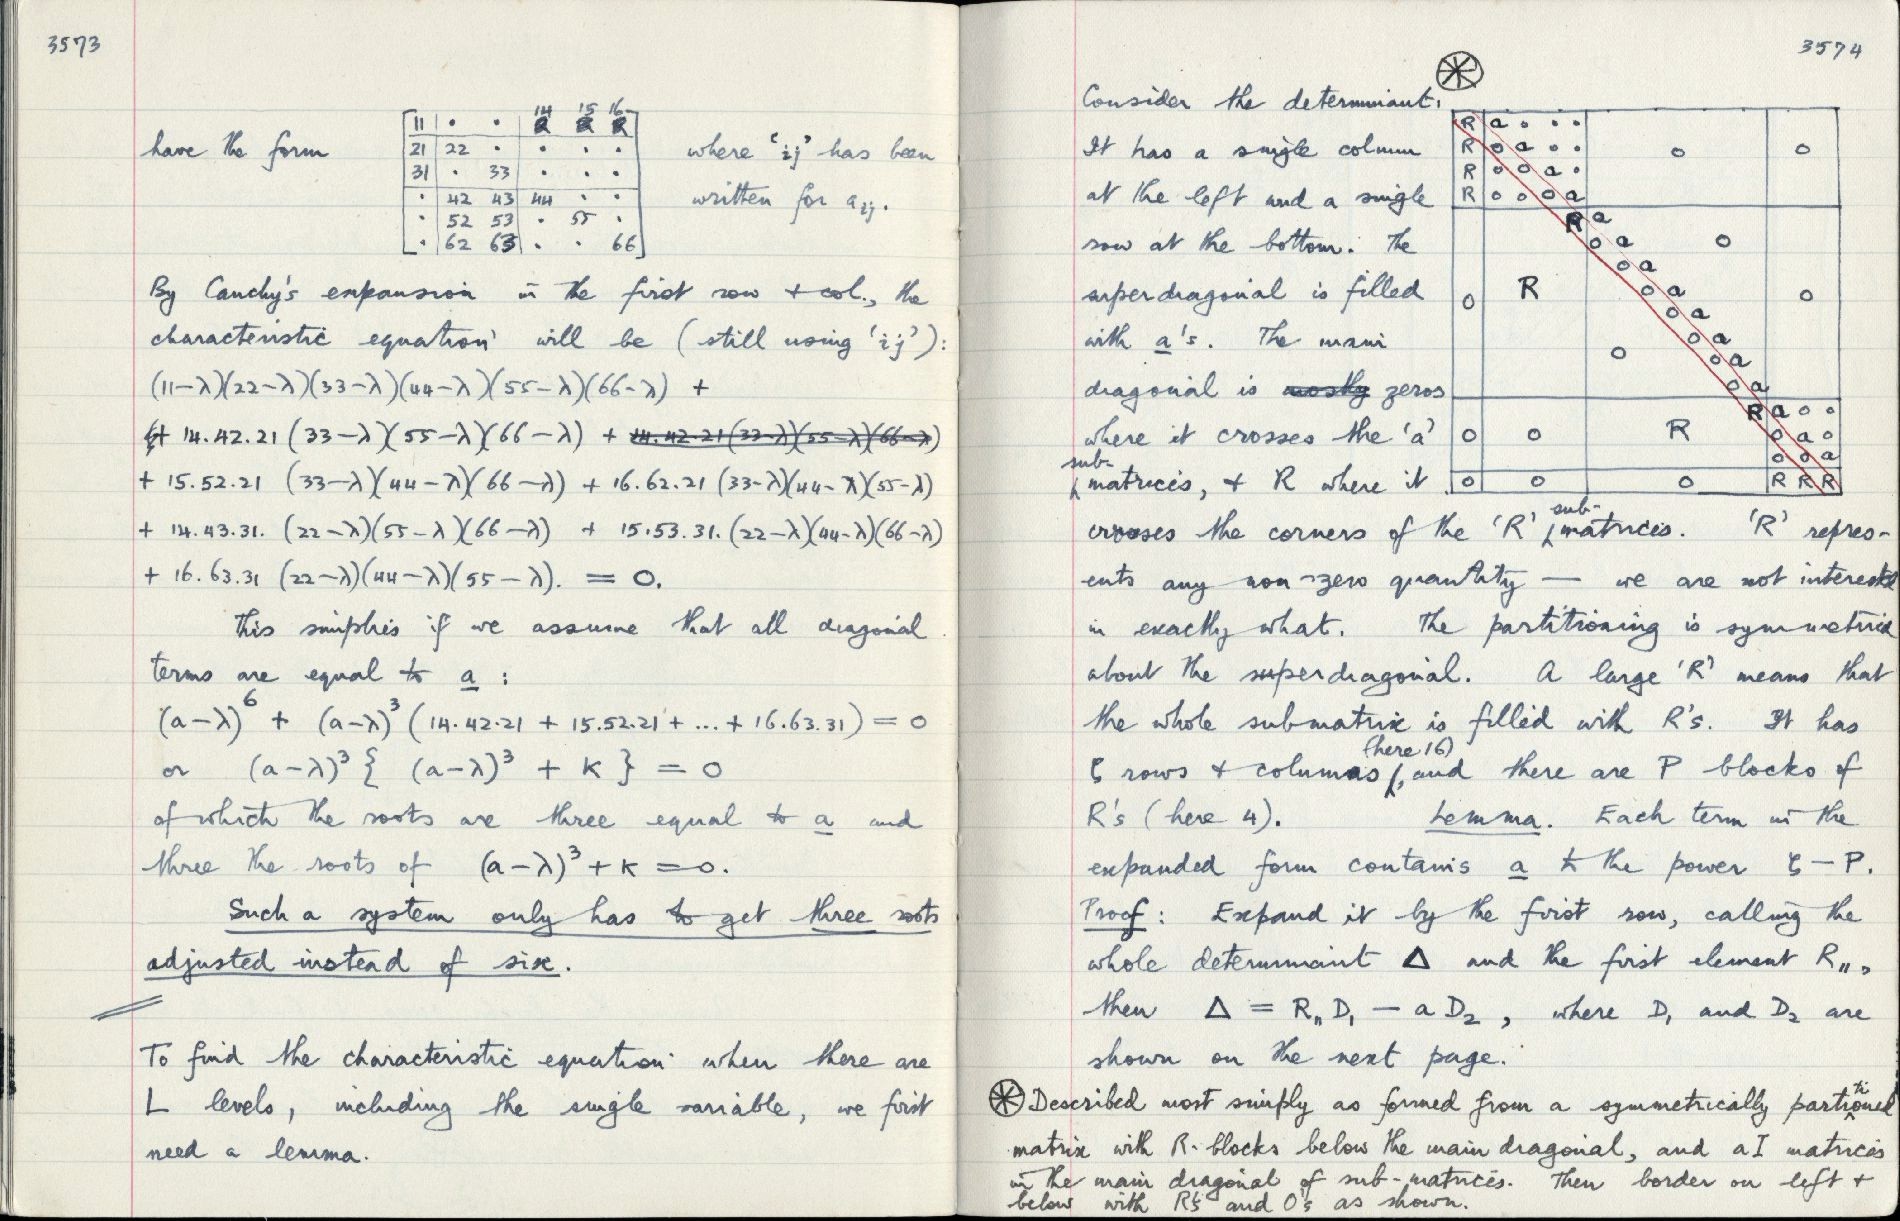 3573
have the form
11 · · 14 15 16
21 22 · · · ·
31 · 33 · · ·
· 42 43 44 · ·
· 52 53 · 55 ·
· 62 63 · · 66
where 'ij' has been
written for aij.
By Cauchy's expansion in the first row + col., the
characteristic equation will be (still using 'ij'):
(11-λ)(22-λ)(33-λ)(44-λ)(55-λ)(66-λ) +
+ 14.42.21 (33-λ)(55-λ)(66-λ) + 14.42.21(33-λ)(55-λ)(66-λ)
+ 15.52.21 (33-λ)(44-λ)(66-λ) + 16.62.21 (33-λ)(44-λ)(55-λ)
+ 14.43.31. (22-λ)(55-λ)(66-λ) + 15.53.31. (22-λ)(44-λ)(66-λ)
+ 16.63.31 (22-λ)(44-λ)(55-λ). = 0.
This simplies if we assume that all diagonal
terms are equal to a :
(a-λ)⁶ + (a-λ)³ (14.42.21 + 15.52.21 + ... + 16.63.31) = 0
or (a-λ)³ { (a-λ)³ + K } = 0
of which the roots are three equal to a and
three the roots of (a-λ)³ + K = 0.
Such a system only has to get three roots
adjusted instead of six.
To find the characteristic equation when there are
L levels, including the single variable, we first
need a lemma.
3574
Consider the determinant.
It has a single column
at the left and a single
row at the bottom. The
superdiagonal is filled
with a's. The main
diagonal is mostly zeros
where it crosses the 'a'
sub-matrices, + R where it
R a · · ·
R o a · · o o
R o o a ·
R o o o a
R a
o a o
o a
o R o a o
o a
o a
o o a
o a
R a o o
o o R o a o
o o a
o o o R R R
crosses the corners of the 'R' sub-matrices. 'R' repres-
ents any non-zero quantity — we are not interested
in exactly what. The partitioning is symmetrical
about the superdiagonal. A large 'R' means that
the whole submatrix is filled with R's. It has
ζ rows + columns (here 16), and there are P blocks of
R's (here 4). Lemma. Each term in the
expanded form contains a to the power ζ - P.
Proof: Expand it by the first row, calling the
whole determinant Δ and the first element R₁₁,
then Δ = R₁₁ D₁ - a D₂, where D₁ and D₂ are
shown on the next page.
⊛ Described most simply as formed from a symmetrically partitioned
matrix with R-blocks below the main diagonal, and aI matrices
in the main diagonal of sub-matrices. Then border on left +
below with R's and O's as shown.